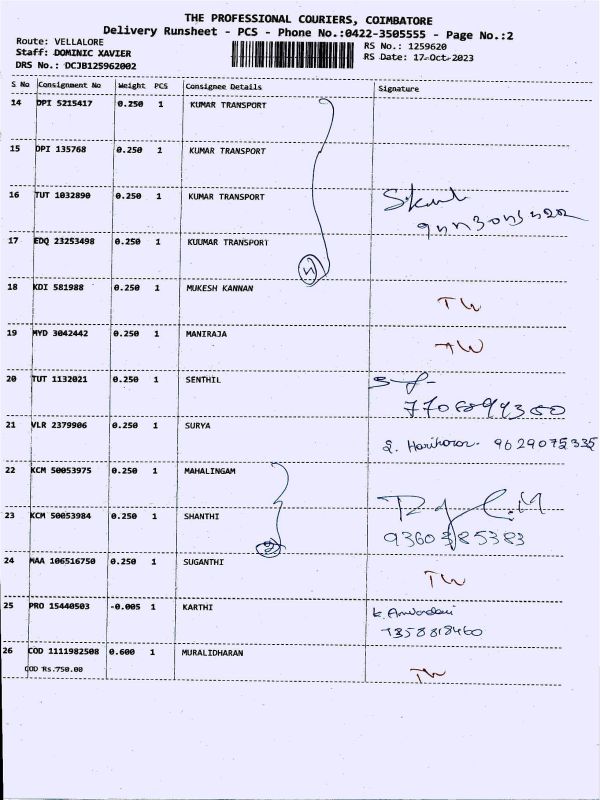 THE PROFESSIONAL COURIERS, COIMBATORE
Delivery Runsheet - PCS - Phone No.:0422-3505555 - Page No.:2
Route: VELLALORE
RS No.: 1259620
Staff: DOMINIC XAVIER
RS Date: 17-Oct-2023
DRS No.: DCJB125962002
S No Consignment No Weight PCS Consignee Details Signature
14 DPI 5215417 0.250 1 KUMAR TRANSPORT
15 DPI 135768 0.250 1 KUMAR TRANSPORT
16 TUT 1032890 0.250 1 KUMAR TRANSPORT
17 EDQ 23253498 0.250 1 KUUMAR TRANSPORT
18 KDI 581988 0.250 1 MUKESH KANNAN TW
19 MYD 3042442 0.250 1 MANIRAJA TW
20 TUT 1132021 0.250 1 SENTHIL
21 VLR 2379906 0.250 1 SURYA
S. Hariharan. 9629075335
22 KCM 50053975 0.250 1 MAHALINGAM
23 KCM 50053984 0.250 1 SHANTHI
9360385383
2
24 MAA 106516750 0.250 1 SUGANTHI TW
25 PRO 15440503 -0.005 1 KARTHI
7358818460
26 COD 1111982508 0.600 1 MURALIDHARAN TW
COD Rs.750.00